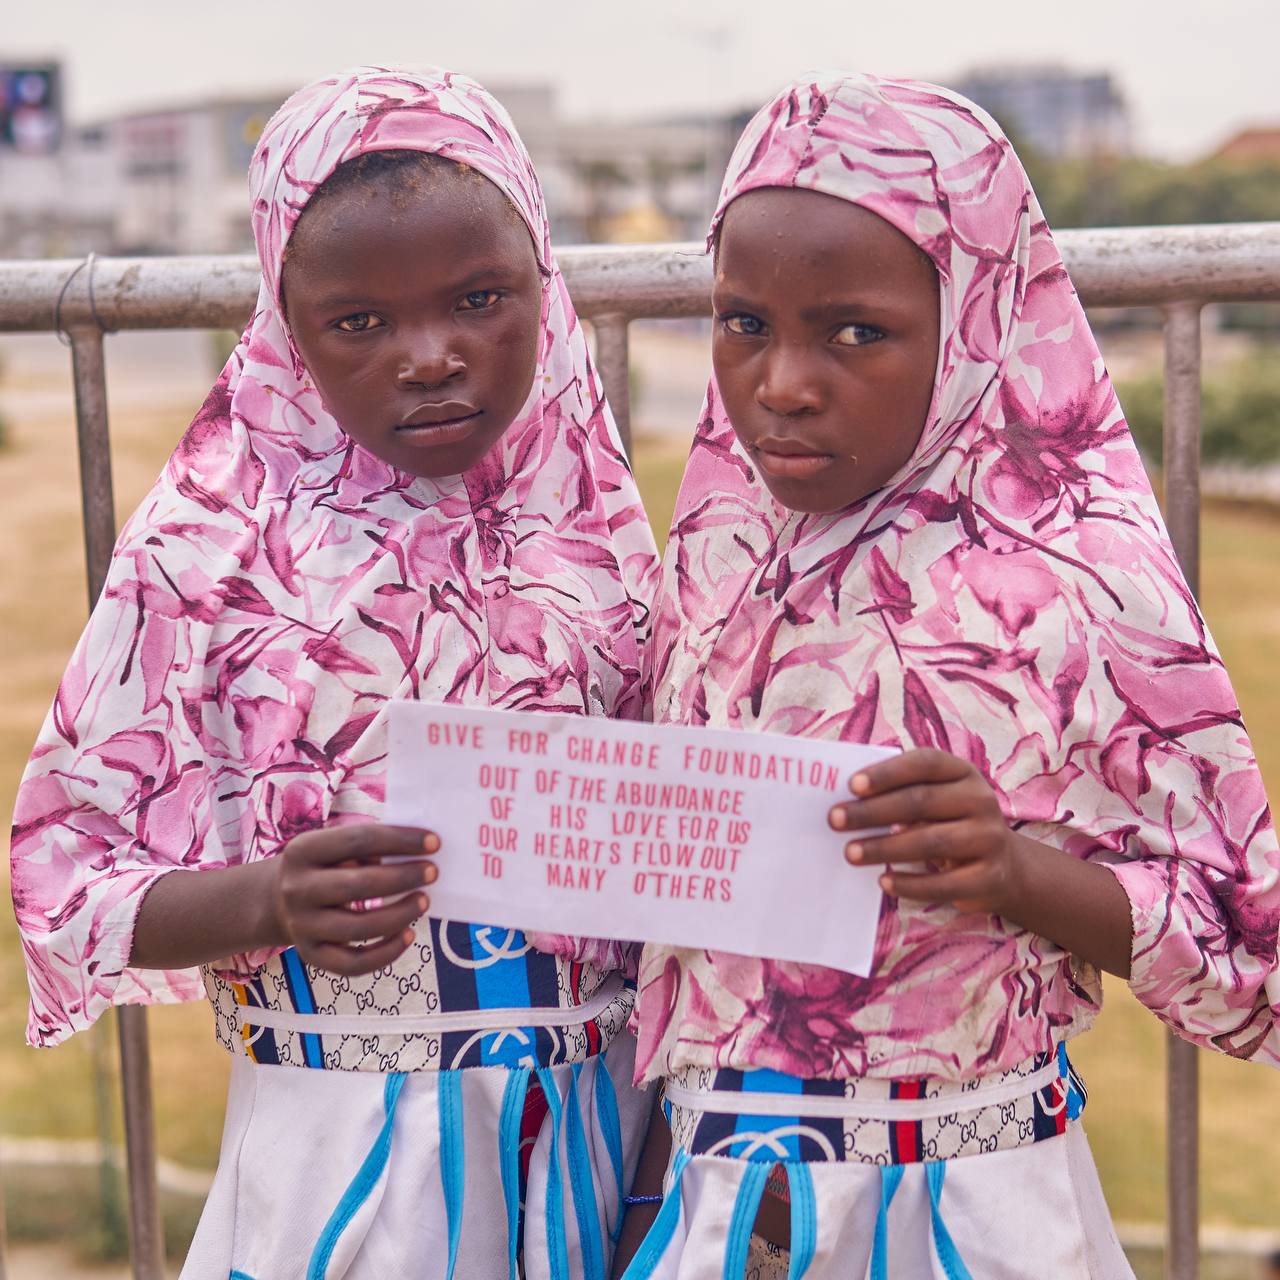 GIVE FOR CHANGE FOUNDATION
OUT OF THE ABUNDANCE
OF HIS LOVE FOR US
OUR HEARTS FLOW OUT
TO MANY OTHERS